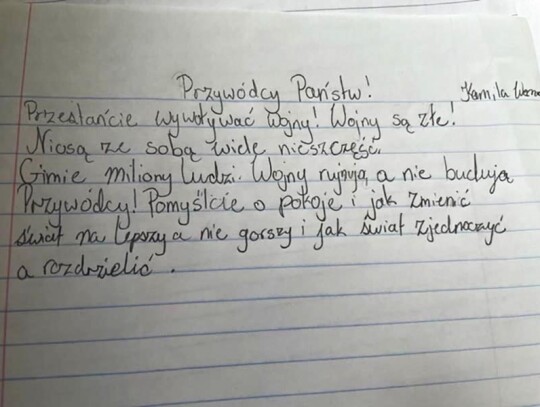 Przywódcy Państw!
Kamila
Przestańcie wywoływać wojny! Wojny są złe!
Niosą ze sobą wiele nieszczęść.
Gimie miliony ludzi. Wojny rujnują a nie budują
Przywódcy! Pomyślcie o pokoje i jak zmienić
świat na lepszy a nie gorszy i jak świat zjednoczyć
a rozdzielić.